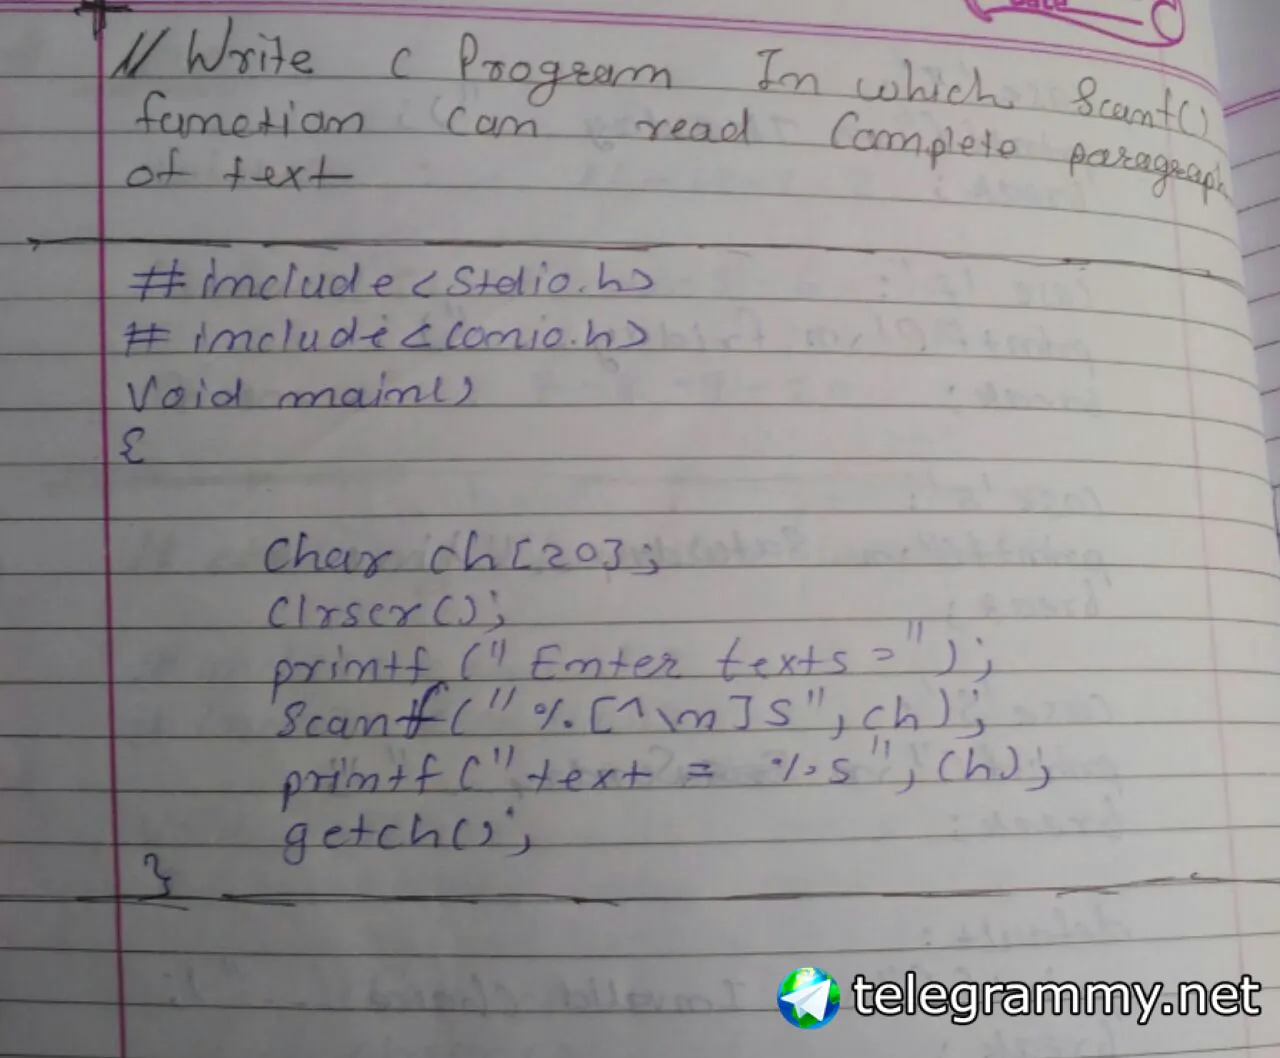 // Write C Program In which Scanf()
function can read Complete paragraph
of text
#include<Stdio.h>
#include<conio.h>
Void main()
{
Char ch[20];
Clrscr();
printf ("Enter texts =");
Scanf("%[^\n]s",ch);
printf("text = %s",ch);
getch();
}
telegrammy.net